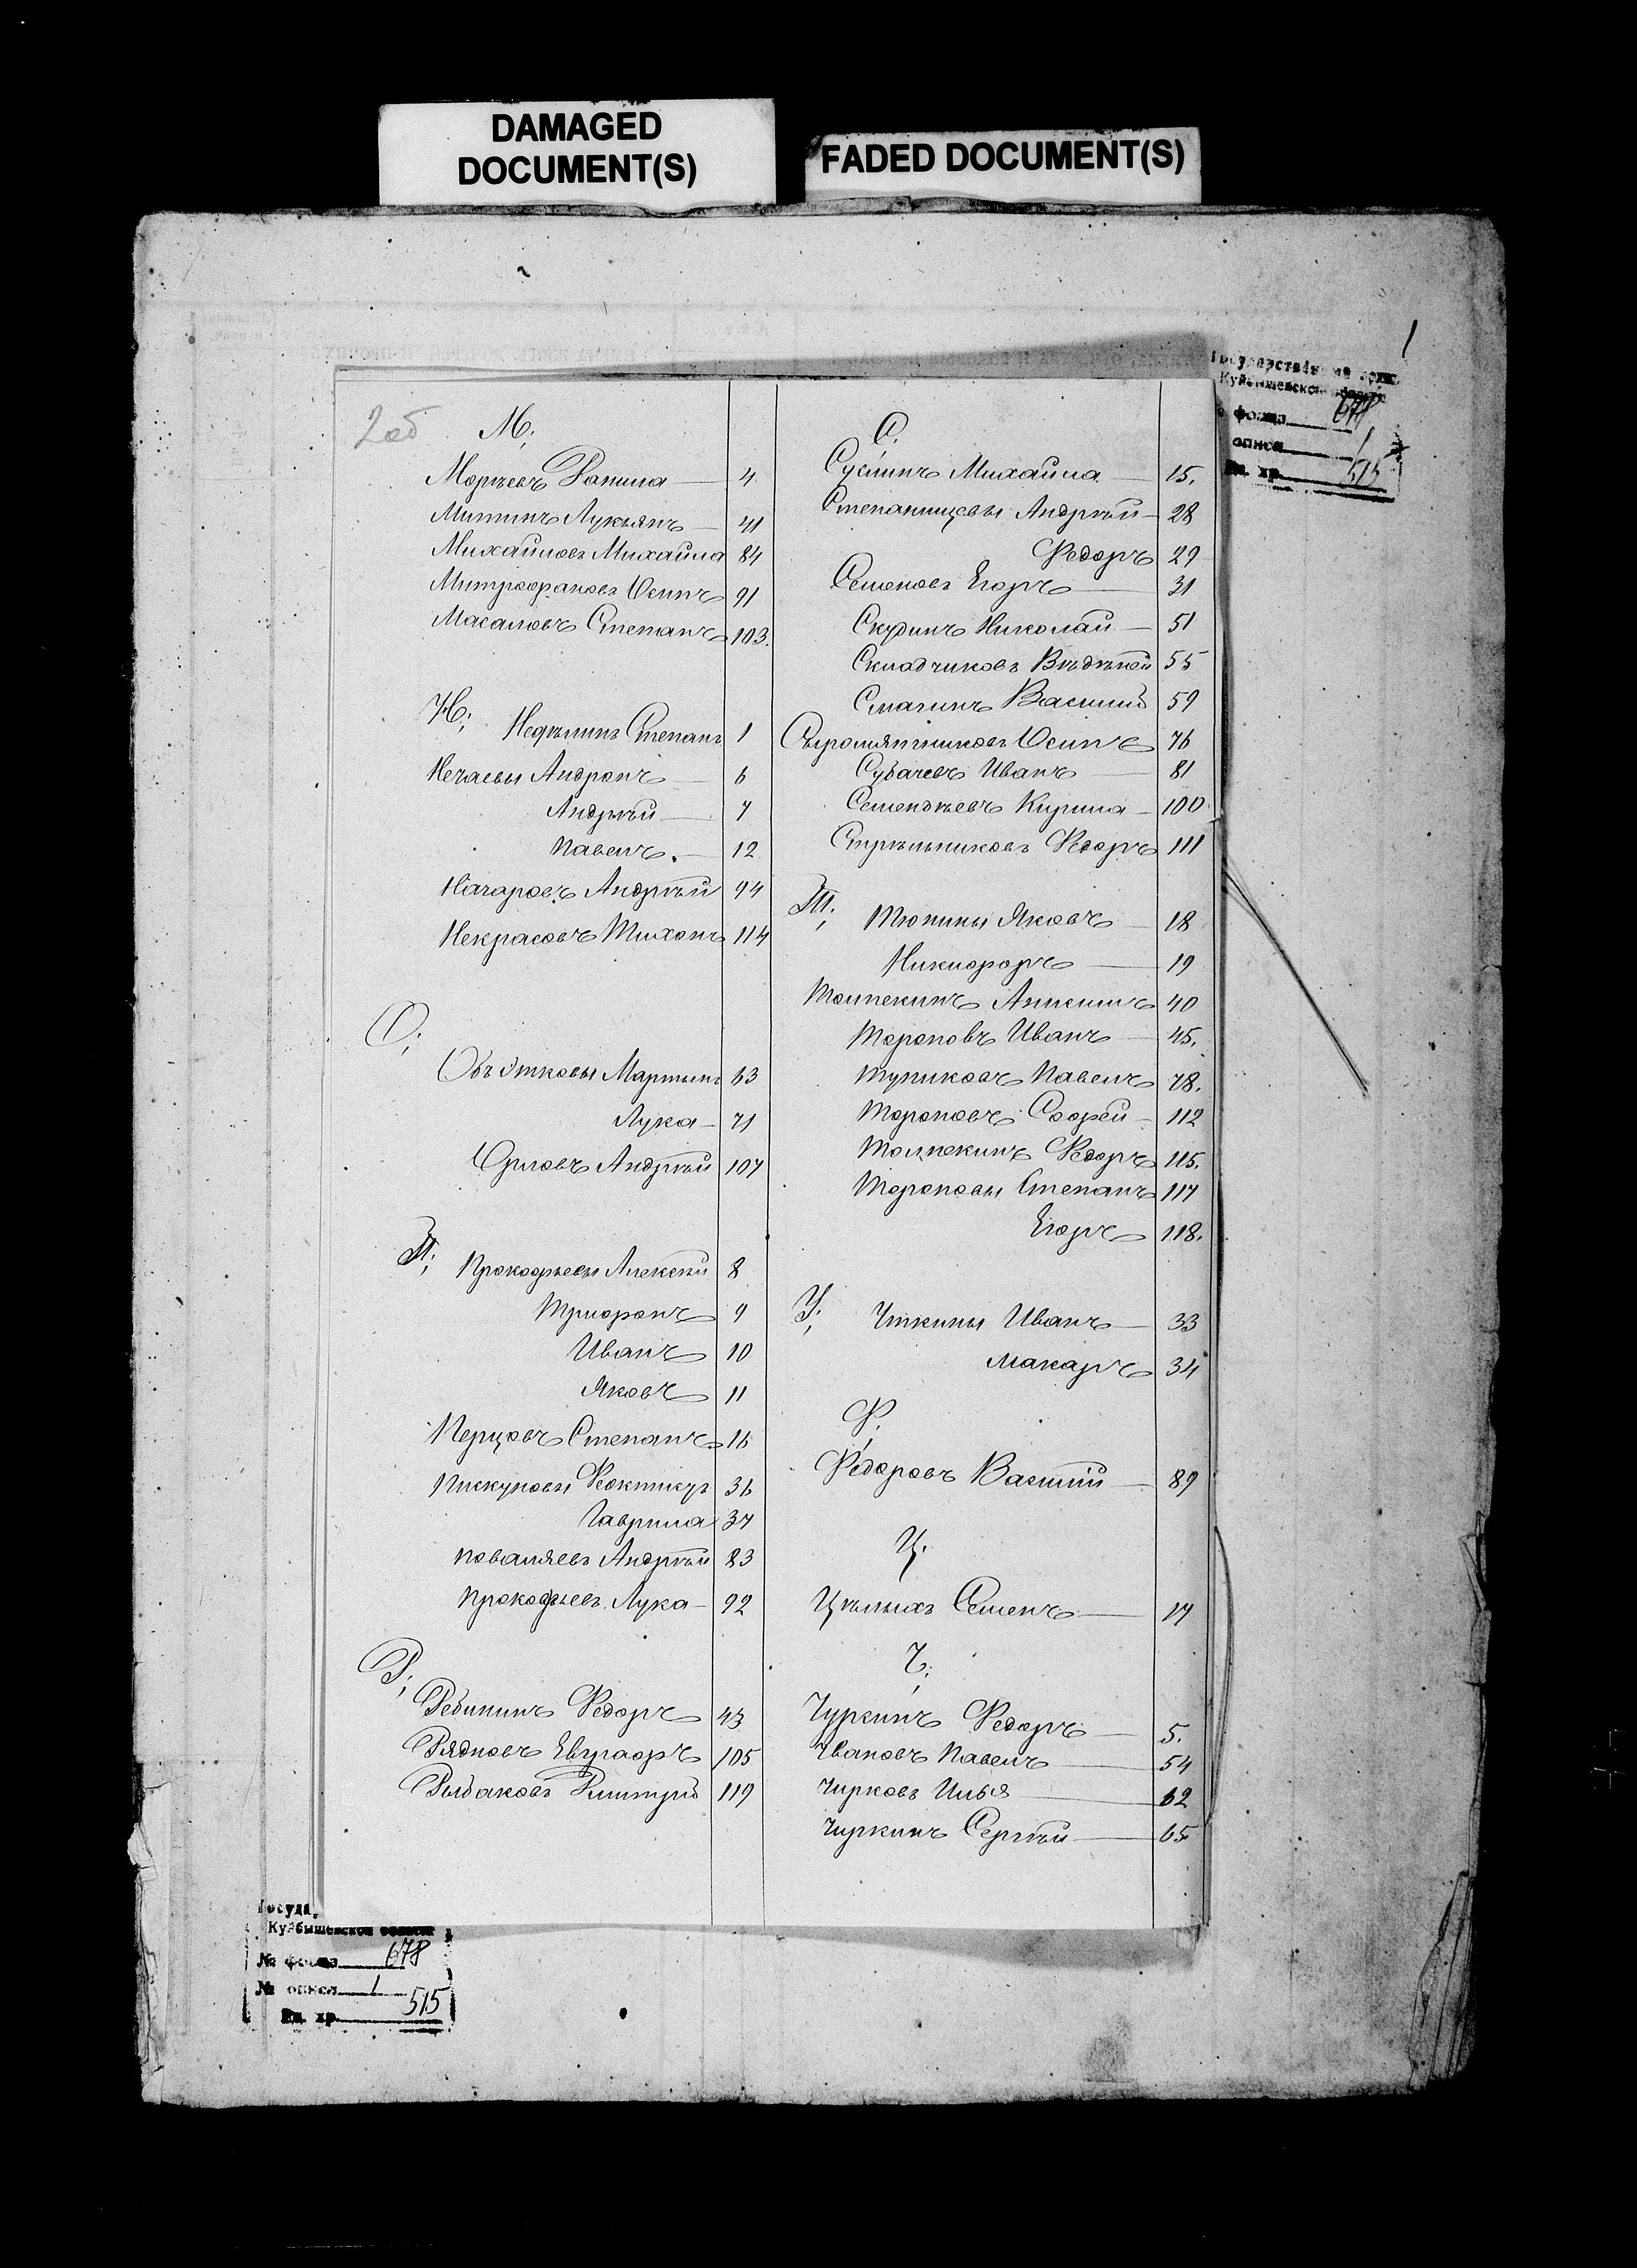 DAMAGED
DOCUMENT(S)
FADED DOCUMENT(S)
1
Куйбышевской области
№ фонда 678
№ описи 1
Ед. хр. 515
2об
М;
Моргъевъ Данила — 4
Митинъ Лукьянъ — 41
Михайловъ Михайла 84
Митрофановъ Осипъ 91
Масаловъ Степанъ 103.
Н;
Нефѣлинъ Степанъ 1
Нечаевы Андронъ — 6
Андрѣй — 7
Павелъ. — 12
Начаровъ Андрѣй 94
Некрасовъ Тихонъ 114
О;
Объѣтковы Мартынъ 63
Лука — 71
Орловъ Андрѣй 107
П;
Прокофьевы Алексѣй 8
Трифонъ 9
Иванъ 10
Яковъ 11
Перцовъ Степанъ 16
Пискуновы Феоктистъ 36
Гаврила 37
Поваляевъ Андрѣй 83
Прокофьевъ Лука — 92
Р;
Ребининъ Федоръ 43
Рядновъ Евграфъ 105
Рыбаковъ Дмитрій 119
С;
Суслинъ Михайла — 15.
Степанищевы Андрѣй — 28
Федоръ 29
Семеновъ Егоръ — 31
Скудинъ Николай — 51
Складчиковъ 55
Смагинъ Василій 59
Сыромятниковъ Осипъ 76
Субачевъ Иванъ — 81
Семендѣевъ Кирила — 100
Стрѣльниковъ Федоръ 111
Т;
Тюнины Яковъ — 18
Никифоръ — 19
Толпекинъ Аникинъ 40
Тороповъ Иванъ — 45.
Тупиковъ Павелъ 78.
Тороповъ Софей — 112
Толпекинъ Федоръ 115.
Тороповы Степанъ 117
Егоръ 118.
У;
Уткины Иванъ — 33
Макаръ 34
Ф;
Федоровъ Василій — 89
Ц.
Цѣлыхъ Семенъ — 17
Ч;
Чуркинъ Федоръ — 5.
Чвановъ Павелъ — 54
Чирковъ Илья — 62
Чиркинъ Сергѣй — 65
Куйбышевской области
№ фонда 678
№ описи 1
Ед. хр. 515